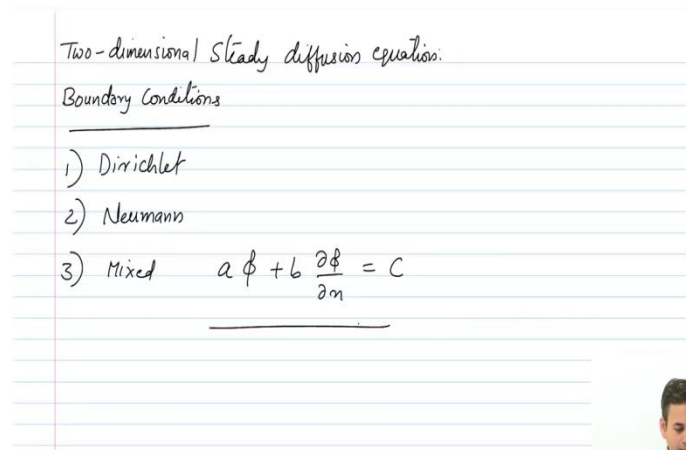 Two-dimensional Steady diffusion equation:
Boundary Conditions
1) Dirichlet
2) Neumann
3) Mixed a ϕ + b ∂ϕ/∂n = C